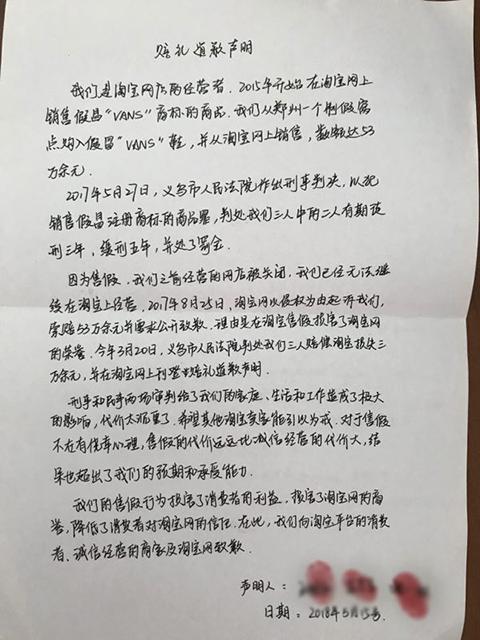 赔礼道歉声明
我们是淘宝网店的经营者. 2015年开始在淘宝网上
销售假冒“VANS”商标的商品. 我们从郑州一个制假窝
点购入假冒“VANS”鞋, 并从淘宝网上销售, 数额达53
万余元.
2017年5月27日, 义乌市人民法院作出刑事判决, 以犯
销售假冒注册商标的商品罪, 判处我们三人中的二人有期徒
刑三年, 缓刑五年, 并处了罚金.
因为售假, 我们之前经营的网店被关闭, 我们已经无法继
续在淘宝上经营. 2017年8月25日, 淘宝网以侵权为由起诉我们,
索赔53万余元并要求公开致歉. 理由是在淘宝售假损害了淘宝网
的荣誉. 今年3月20日, 义乌市人民法院判处我们三人赔偿淘宝损失三
万余元, 并在淘宝网上刊登赔礼道歉声明.
刑事和民事两场审判给了我们的家庭、生活和工作造成了极大
的影响, 代价太沉重了. 希望其他淘宝卖家能引以为戒. 对于售假
不在有侥幸心理, 售假的代价远远比诚信经营的代价大, 结
果也超出了我们的预期和承受能力.
我们的售假行为损害了消费者的利益. 损害了淘宝网的商
誉, 降低了消费者对淘宝网的信任. 在此, 我们向淘宝平台的消费
者、诚信经营的商家及淘宝网致歉.
声明人:
日期: 2018年5月15号.